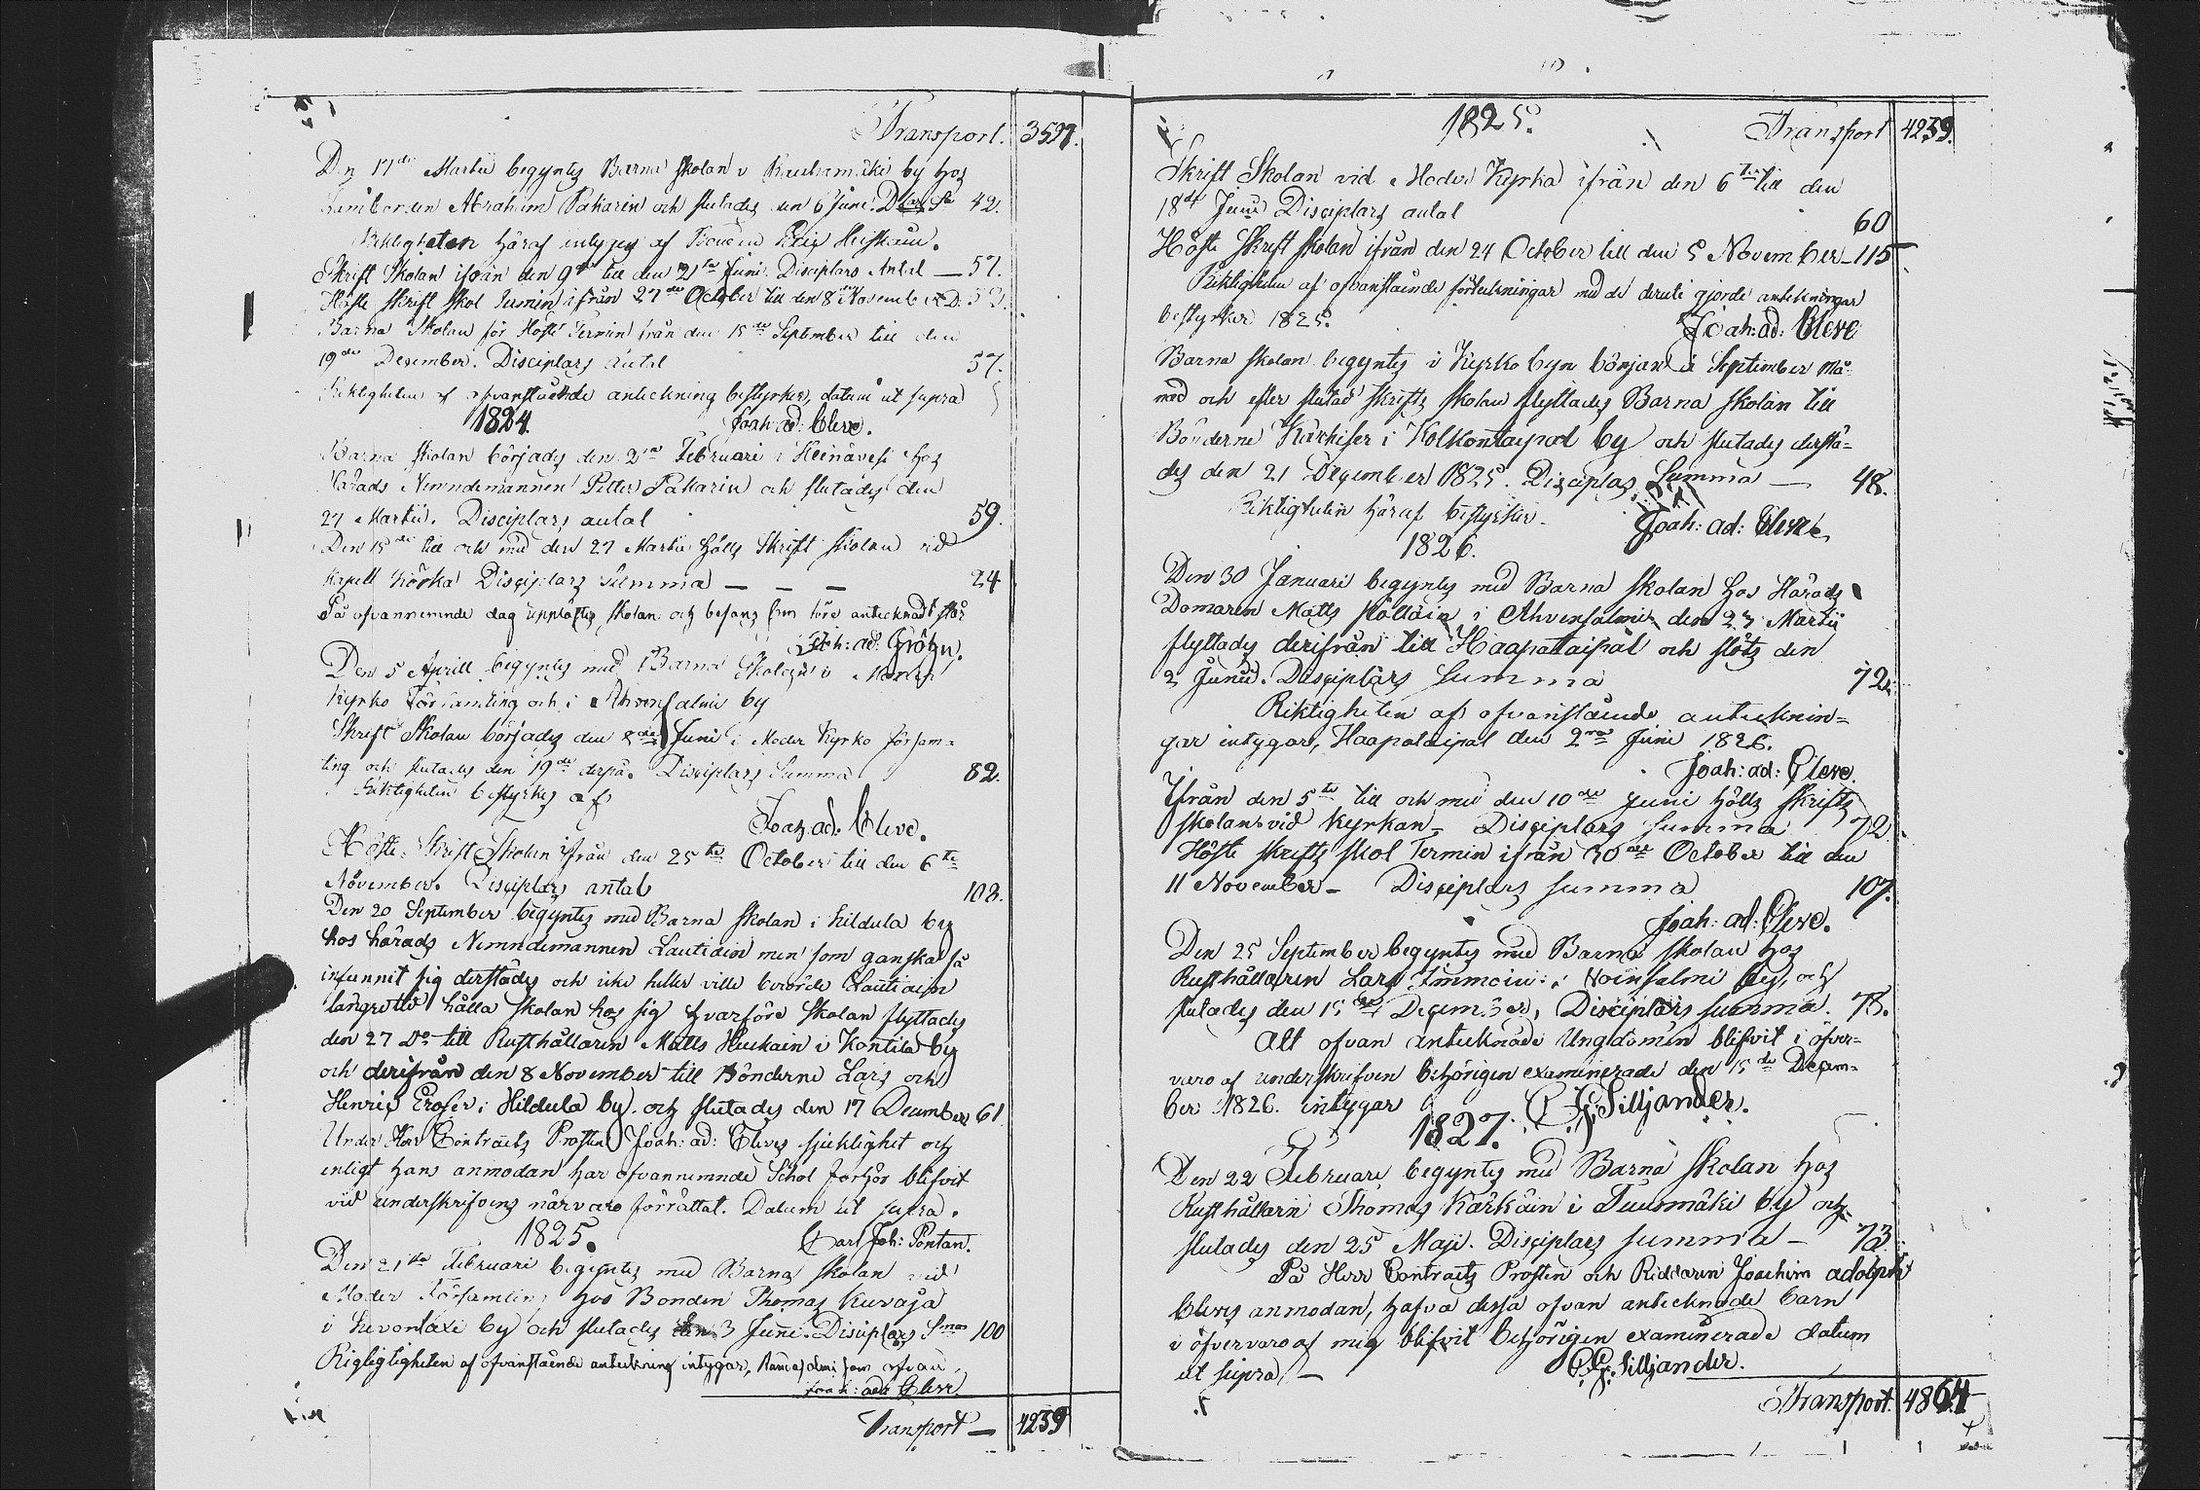 Transport. 3597.
Den 17de Martii begyntes Barna skolan i Rauhamäki by hos
Abraham Pakarin och slutades den 6 Juni. 42.
Riktigheten häraf intygas af Bonden
Skrift Skolan ifrån den 9de till den 21ta Juni. Disciplars Antal — 57.
Höste skrift skol Termin ifrån 27de October till den 8de November D.
Barna Skolan för Höst Termin från den 15de September till den
19de December. Disciplars antal 57.
Riktigheten af ofvanstående anteckning bestyrkes, datum ut supra
1824. Joah: ad: Cleve.
Barna skolan börjades den 2ra Februari i Heinävesi hos
Härads Nemndemannen Petter Pakarin och slutades den
27 Martii. Disciplars antal 59.
Den 15de till och med den 27 Martii hölls Skrift skolan vid
Kapell körka Disciplars Summa — — — 24
På ofvannemnde dag upplästes skolan och befans som före antecknadt står
Joh: ad: Grőhn.
Den 5 Aprill begyntes med Barna Skolan i Moder
Kyrko Församling och i Ahvensalmi by
Skrift Skolan börjades den 8de Juni i Moder Kyrko försam=
ling och slutades den 19de derpå. Disciplars Summa 82.
Riktigheten bestyrkes af
Joah. ad: Cleve.
Höste Skrift Skolan ifrån den 25te October till den 6te
November. Disciplars antal 108.
Den 20 September begyntes med Barna skolan i Hildula by
hos härads Nemndemannen Lautiain men som ganska få
infunnit sig derstädes och icke heller ville berörde Lautiain
längre tid hålla skolan hos sig hvarföre skolan flyttades
den 27 Do till Rusthållaren Matts Huckain i Kontila by
och derifrån den 8 November till Bönderne Lars och
Henric Eroser i Hildula by och slutades den 17 December 61
Under Herr Contracts Prosten Joah: ad: Cleves sjuklighet och
enligt hans anmodan har ofvannemnde Schol förhör blifvit
vid underskrifvens närvaro förrättat. Datum ut supra.
1825. Carl Joh: Pontan.
Den 21sta Februari begyntes med Barna skolan vid
Moder Församling hos Bonden Thomas Kuraja
i by och slutades den 3 Juni. Disciplars Sma 100
Rigtigheten af ofvanstående anteckning intygar, som ofvan
Joah: ad: Cleve
Transport — 4239
1825. Transport 4239.
Skrift Skolan vid Moder Kyrka ifrån den 6te till den
18de Junii Disciplars antal 60
Höste Skrift skolan ifrån den 24 October till den 5 November — 115
Riktigheten af ofvanstående förteckningar med de deruti gjorde anteckningar
bestyrker 1825. Joah: ad: Cleve
Barna skolan begyntes i Kyrko byn början å September Må-
nad och efter slutad skrifts skolan flyttades Barna skolan till
Bönderne Kärkiser i Kolkontaipal by och slutades derstä=
des den 21 December 1825. Disciplars Summa — 48.
Riktigheten häraf bestyrker. Joah: ad: Cleve
1826.
Den 30 Januari begyntes med Barna skolan hos Härads
Domaren Matts i Ahvensalmi, den 23 Martii
flyttades derifrån till Haapataipal och slöts den
2 Junii. Disciplars Summa 72.
Riktigheten af ofvanstående antecknin=
gar intygar, Haapataipal den 2ra Juni 1826.
Joah: ad: Cleve.
Ifrån den 5te till och med den 10de Juni hölls skrifts
skolan vid Kyrkan — Disciplars summa 72
Höste skrifts skol Termin ifrån 30de October till den
11 November — Disciplars summa 107.
Joah: ad: Cleve.
Den 25 September begyntes med Barna skolan hos
Rusthållaren Lars Immoin i by, och
slutades den 15de December, Disciplars summa. 78.
Att ofvan antecknade Ungdomen blifvit i öfver=
varo af underskrifven behörigen examinerade den 15de Decem=
ber 1826. intygar C. G. Silljander.
1827.
Den 22 Februari begyntes med Barna skolan hos
Rusthållarn Thomas Kärkäin i Tuusmäki by och
slutades den 25 Maji. Disciplars summa — 73
På Herr Contracts Prosten och Riddaren Joachim adolph
Cleves anmodan, hafva dessa ofvan antecknade barn
i öfvervaro af mig blifvit behörigen examinerade datum
ut supra — C. G. Silljander.
Transport. 4864